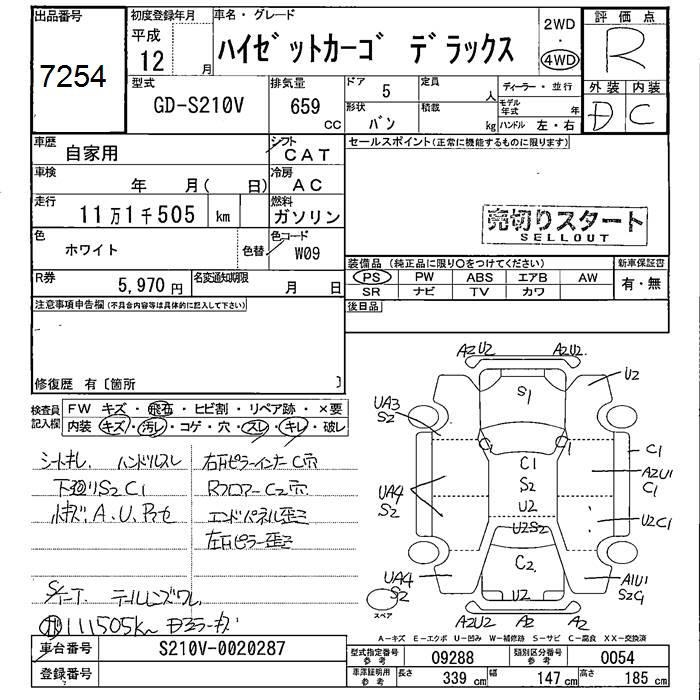 出品番号
7254
初度登録年月
平成
12 月
車名・グレード
ハイゼットカーゴ デラックス
2WD
・
4WD
評価点
R
型式
GD-S210V
排気量
659
CC
ドア
5
定員
人
形状
バン
積載
kg
ディーラー・並行
モデル年式
年
ハンドル 左・右
外装 内装
D C
車歴
自家用
シフト
CAT
車検
年 月( 日)
冷房
AC
走行
11万1千505 km
燃料
ガソリン
色
ホワイト
色替
色コード
W09
R券
5,970円
名変通知期限
月 日
セールスポイント(正常に機能するものに限ります)
売切りスタート
SELLOUT
装備品(純正品に限り○をつけてください)
PS PW ABS エアB AW
SR ナビ TV カワ
新車保証書
有・無
後日品
注意事項申告欄(不具合内容等は具体的に記入して下さい)
修復歴 有〔箇所 〕
検査員
記入欄
FW キズ・飛石・ヒビ割・リペア跡・×要
内装 キズ・汚レ・コゲ・穴・スレ・キレ・破レ
シートキレ ハンドルスレ
下廻りS2C1
小キズ、A、U、Pアセ
テールレンズワレ
111505km
右Rピラーインナー C穴
Rフロアー C2穴
エンドパネル歪ミ
左Rピラー歪ミ
A2U2
A2U2
S1
U2
UA3
S2
1
C1
C1
S2
U2
U2S2
A2U1
C1
UA4
S2
U2C1
C2
U2
UA4
S2
A1U1
S2C1
スペア
A2U2
A2
A2
A−キズ E−エクボ U−凹み W−補修跡 S−サビ C−腐食 XX−交換済
車台番号
S210V-0020287
登録番号
型式指定番号
参考
09288
類別区分番号
参考
0054
車庫証明用
参考
長さ
339 cm
幅
147 cm
高さ
185 cm